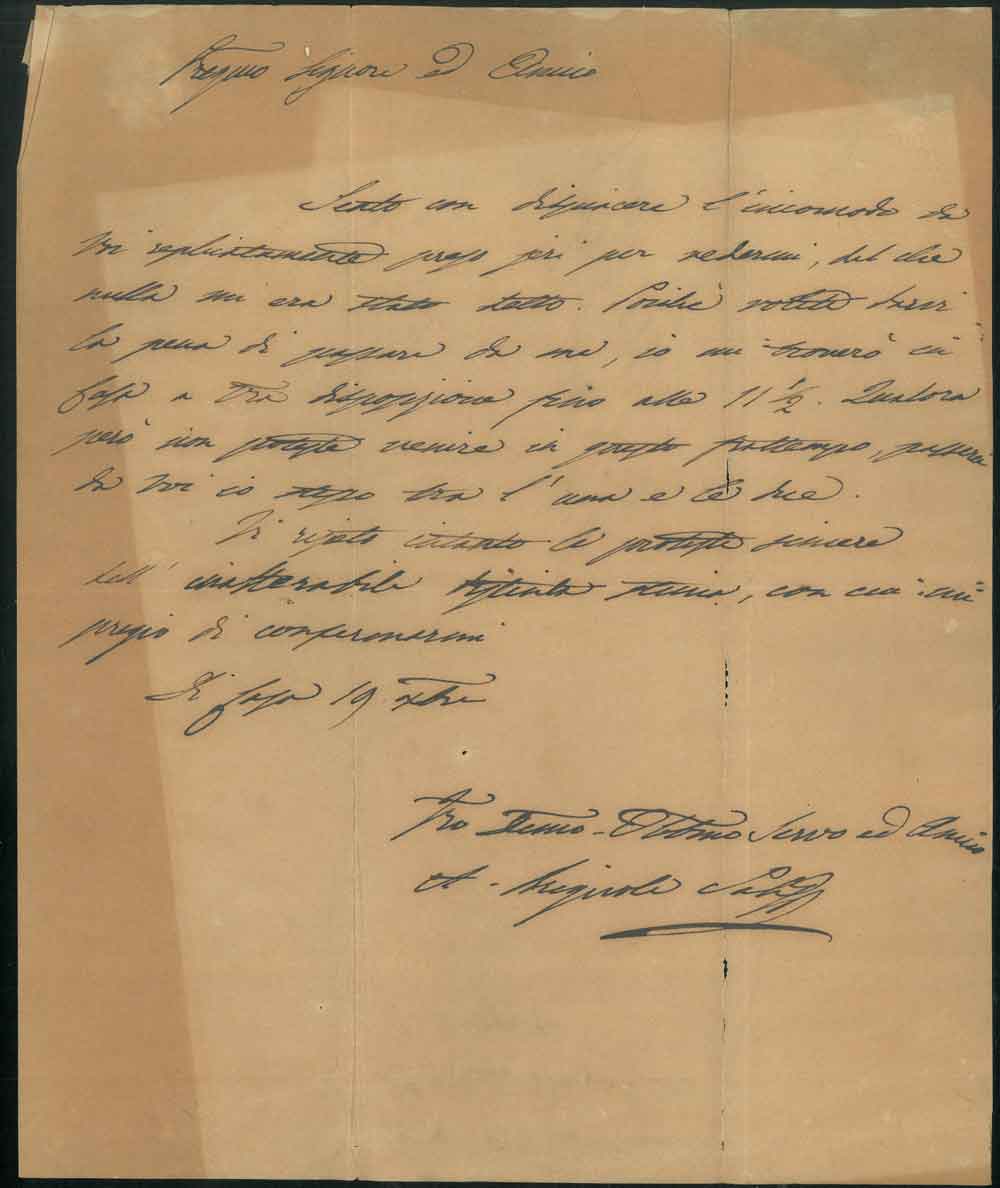 Pregmo Signore ed Amico
Sento con dispiacere l'incomodo da
Voi replicatamente preso jeri per vedermi, del che
nulla mi era stato detto. volete darvi
la pena di passare da me, io mi troverò in
casa a Vra disposizione fino alle 11 ½. Qualora
però non poteste venire in questo frattempo, passerò
da Voi io stesso tra l'una e le due.
Vi ripeto intanto le proteste sincere
dell'inalterabile distinta stima, con cui mi
pregio di confermarmi
Di Casa 19 xbre
Vro Devmo - Obbmo Servo ed Amico
A. Brignole Sale